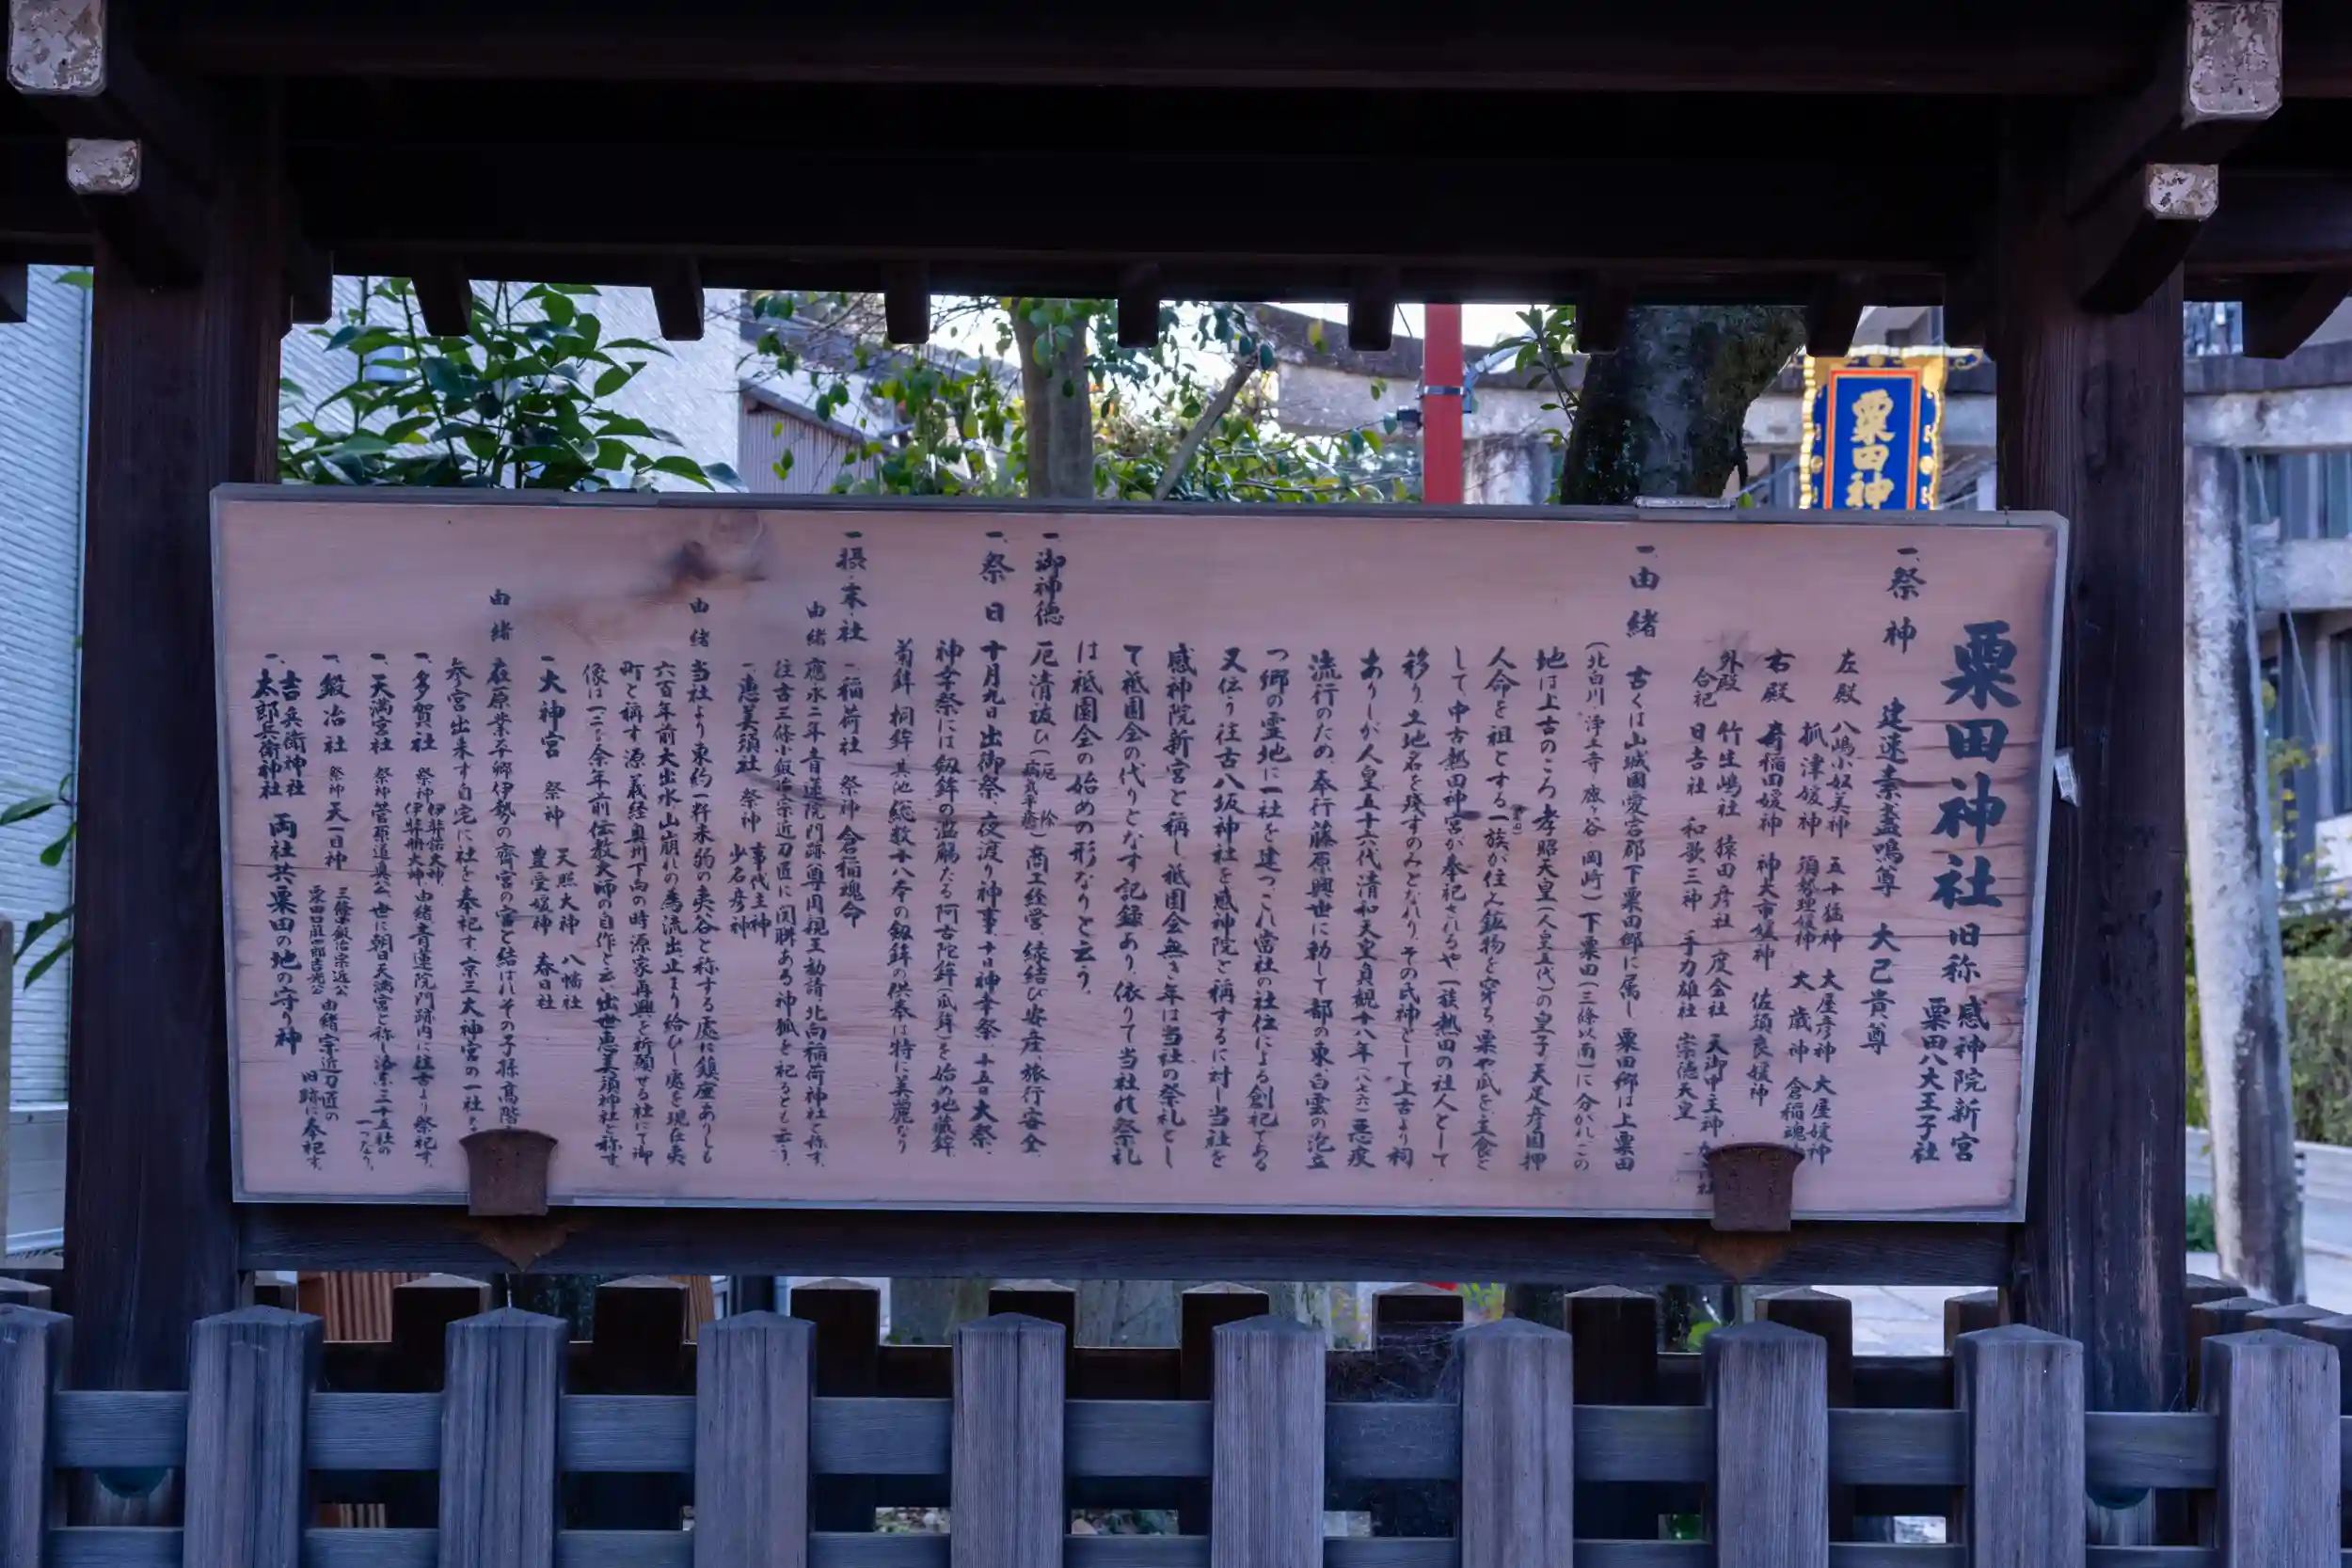 粟田神
粟田神社 旧称 感神院新宮
粟田八大王子社
一、祭神 建速素盞嗚尊 大己貴尊
左殿 八嶋小奴美神 五十猛神 大屋彦神 大屋媛神
抓津媛神 須勢理媛神 大歳神 倉稲魂
右殿 奇稲田媛神 神大市媛神 佐須良媛神
外殿 竹生嶋社 猿田彦社 度会社 天御中主神
合祀 日吉社 和歌三神 手力雄社 崇徳天皇
一、由緒 古くは山城國愛宕郡下粟田郷に属し 粟田郷は上粟田
(北白川・浄土寺・鹿ヶ谷・岡崎)下粟田(三條以南)に分かれこの
地は上古のころ孝昭天皇(人皇五代)の皇子天足彦国押
人命を祖とする一族が住み鉱物を穿ち粟や瓜を主食と
して、中古熱田神宮が奉祀されるや一族熱田の社人として
移り、土地名を残すのみとなれり、その氏神として上古より祠
ありしが人皇五十六代清和天皇貞観十八年(八七六)悪疫
流行のため、奉行藤原興世に勅して都の東、白雲の泡立
つ郷の霊地に一社を建つこれ当社の社伝による創祀である
又伝う往古八坂神社を感神院と称するに対し当社を
感神院新宮と称し祇園会無き年は当社の祭礼をし
て祗園会の代りとなす記録あり、依りて当社の祭礼
は祗園会の始めの形なりと云う。
一、御神徳 厄清祓ひ(厄除 病気平癒)商工経営、縁結び安産、旅行安全
一、祭日 十月九日出御祭、夜渡り神事、十日神幸祭 十五日大祭、
神幸祭には剱鉾の濫觴たる阿古陀鉾(瓜鉾)を始め地蔵鉾
菊鉾 桐鉾 其他総数十八本の剱鉾の供奉は特に美麗なり
一、摂・末・社 一、稲荷社 祭神 倉稲魂命
由緒 應永二年青蓮院門跡尊円親王勧請北向稲荷神社と称す。
往古三條小鍛冶宗近刀匠に関聨ある神狐を祀るとも云う。
一、恵美須社 祭神 事代主神
少名彦神
由緒 当社より東約一粁末粥の夷谷と称する處に鎮座ありしも
六百年前大出水山崩れの為流出止まり給ひし處を現在夷
町と稱す源義経奥州下向の時源家再興を祈願せる社にて御
像は一二〇〇余年前伝教大師の自作と云い出世恵美須神社と称す。
一、大神宮 祭神 天照大神 八幡社
豊受媛神 春日社
由緒 在原業平郷伊勢の斎宮の宮と結ばれその子孫高階
参宮出来ず自宅に社を奉祀す、京三大神宮の一社
一、多賀社 祭神 伊弉諾大神
伊弉册大神 由緒 青蓮院門跡内に往古より祭祀す。
一、天満宮社 祭神 菅原道真公 世に朝日天満宮と称し洛東二十五社の
一つなり。
一、鍛冶社 祭神 天一目神 三條小鍛冶宗近公
粟田口藤四郎吉光公 由緒 宗近刀匠の
旧跡に奉祀す。
一、吉兵衛神社
太郎兵衛神社 両社共粟田の地の守り神